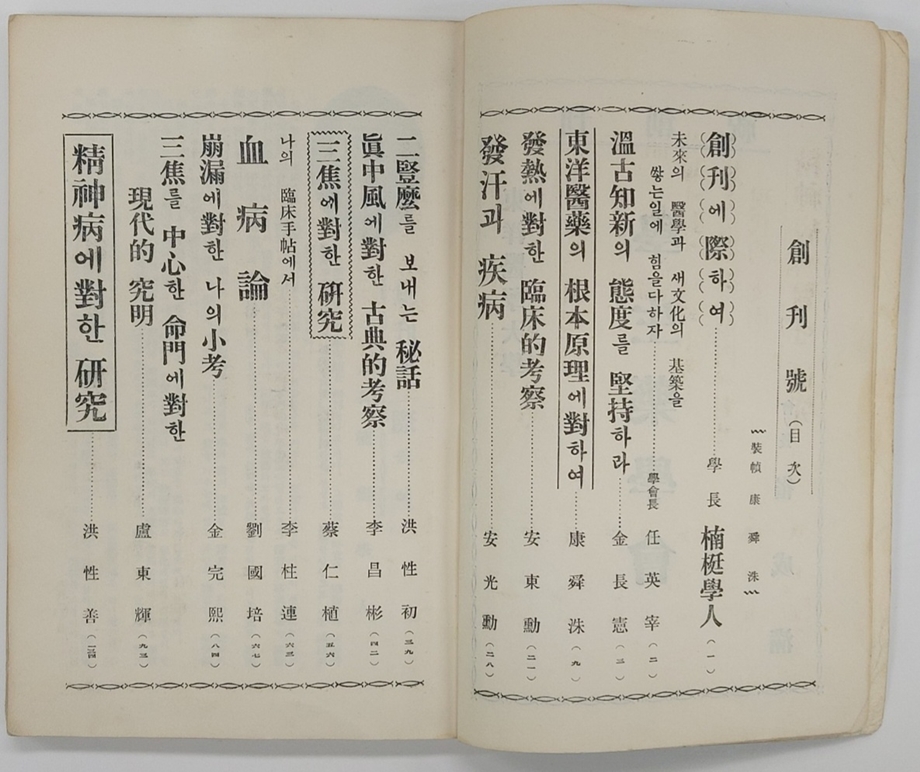 創刊號(目次)
裝幀 康舜洙
創刊에 際하여 學長 楠梃學人 (一)
未來의 醫學과 새文化의 基築을
쌓는일에 힘을다하자 學會長 任英宰 (二)
溫古知新의 態度를 堅持하라 金長憲 (三)
東洋醫藥의 根本原理에對하여 康舜洙 (九)
發熱에對한 臨床的考察 安東勳 (二一)
發汗과 疾病 安光勳 (二八)
二豎麽를 보내는 秘話 洪性初 (三九)
眞中風에對한 古典的考察 李昌彬 (四二)
三焦에對한 硏究 蔡仁植 (五六)
나의 臨床手帖에서 李柱連 (六三)
血病論 劉國培 (六七)
崩漏에對한 나의小考 金完熙 (八四)
三焦를 中心한 命門에對한
現代的 究明 盧東輝 (九三)
精神病에對한 硏究 洪性善